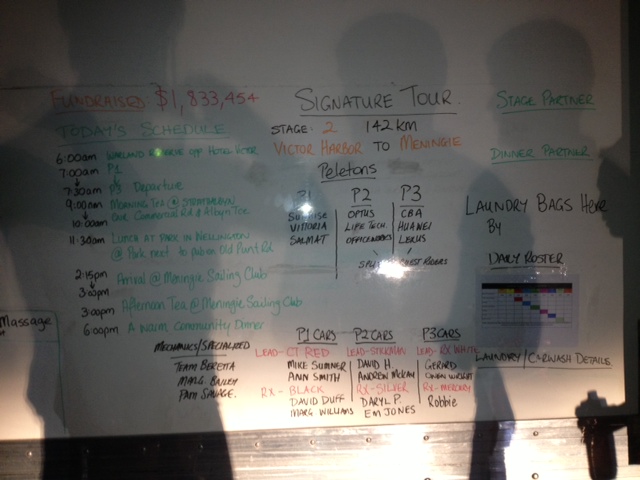 FUNDRAISED $1,833,454
SIGNATURE TOUR.
STAGE PARTNER
TODAY'S SCHEDULE
STAGE: 2 142 km
VICTOR HARBOR TO MENINGIE
DINNER PARTNER
6:00am WARLAND RESERVE opp HOTEL VICTOR
7:00am P1
7:30am P3 Departure
9:00am MORNING TEA @ STRATHALBYN
10:00am Cnr Commercial Rd & Albyn Tce.
11:30am LUNCH AT PARK IN WELLINGTON
@ Park next to pub on Old Punt Rd
2:15pm
3:00pm Arrival @ Meningie Sailing Club
3:00pm Afternoon Tea @ Meningie Sailing Club
6:00pm A warm Community Dinner
Peletons
P1 P2 P3
SunRise OPTUS CBA
VITTORIA LIFE TECH. HUAWEI
SALMAT OFFICEWORKS LEXUS
SPLIT GUEST RIDERS
LAUNDRY BAGS Here
By
DAILY ROSTER
LAUNDRY/CARWASH DETAILS
Massage
MECHANICS/SPECIALIZED
TEAM BERETTA
MARG. BAILEY
PAM SAVAGE.
P1 CARS P2 CARS P3 CARS
LEAD-CT RED LEAD-STICKMAN LEAD-RX WHITE
MIKE SUMNER DAVID H. GERARD
ANN SMITH ANDREW MCKAY OWEN WRIGHT
RX-BLACK RX-SILVER RX-MERCURY
DAVID DUFF DARYL P. Robbie
MARG WILLIAMS EM JONES